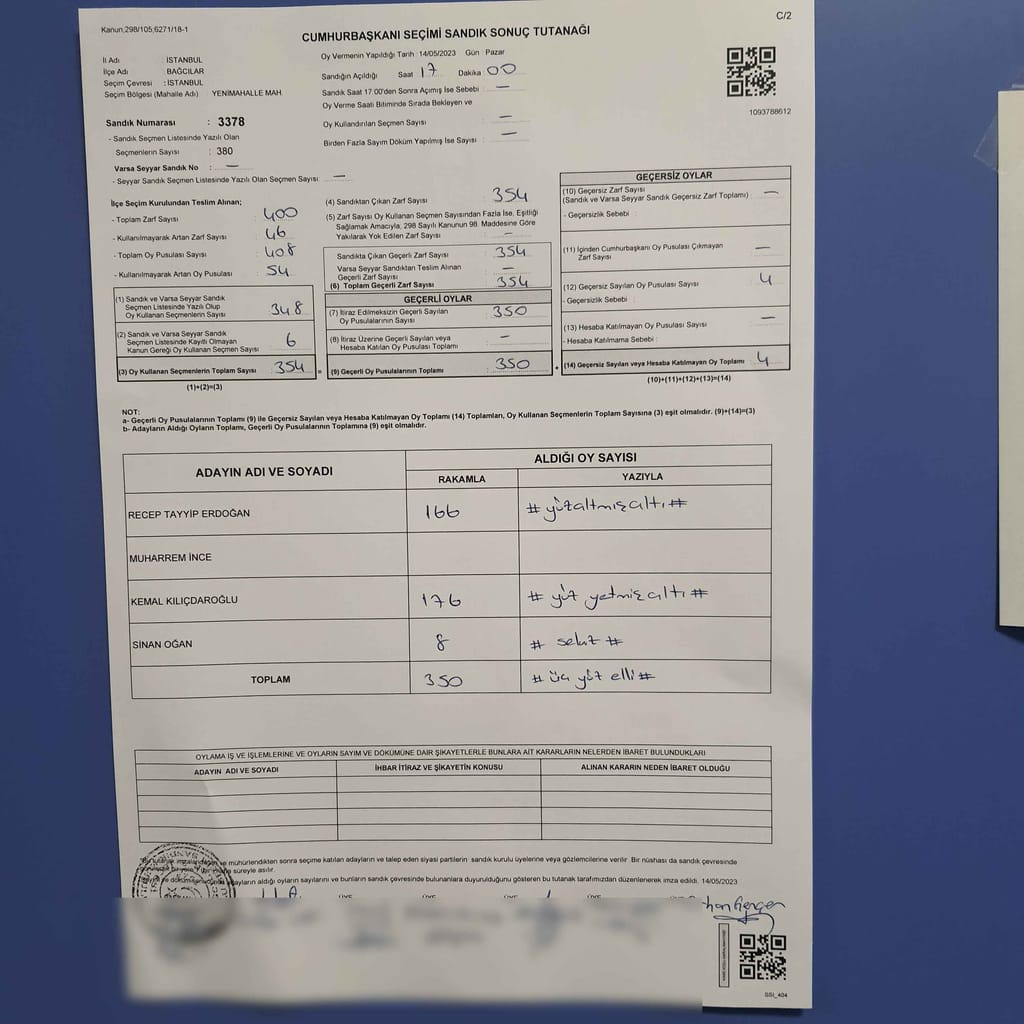 Kanun,298/105,6271/18-1
C/2
CUMHURBAŞKANI SEÇİMİ SANDIK SONUÇ TUTANAĞI
İl Adı : İSTANBUL
İlçe Adı : BAĞCILAR
Seçim Çevresi : İSTANBUL
Seçim Bölgesi (Mahalle Adı) YENİMAHALLE MAH.
Sandık Numarası : 3378
- Sandık Seçmen Listesinde Yazılı Olan
Seçmenlerin Sayısı : 380
Varsa Seyyar Sandık No : —
- Seyyar Sandık Seçmen Listesinde Yazılı Olan Seçmen Sayısı: —
Oy Vermenin Yapıldığı Tarih : 14/05/2023 Gün : Pazar
Sandığın Açıldığı Saat 17 Dakika 00
Sandık Saat 17.00'den Sonra Açımış İse Sebebi : —
Oy Verme Saati Bitiminde Sırada Bekleyen ve
Oy Kullandırılan Seçmen Sayısı : —
Birden Fazla Sayım Döküm Yapılmış İse Sayısı : —
1093788612
İlçe Seçim Kurulundan Teslim Alınan;
- Toplam Zarf Sayısı : 400
- Kullanılmayarak Artan Zarf Sayısı : 46
- Toplam Oy Pusulası Sayısı : 408
- Kullanılmayarak Artan Oy Pusulası : 54
(1) Sandık ve Varsa Seyyar Sandık
Seçmen Listesinde Yazılı Olup
Oy Kullanan Seçmenlerin Sayısı : 348
(2) Sandık ve Varsa Seyyar Sandık
Seçmen Listesinde Kayıtlı Olmayan
Kanun Gereği Oy Kullanan Seçmen Sayısı : 6
(3) Oy Kullanan Seçmenlerin Toplam Sayısı : 354
(1)+(2)=(3)
(4) Sandıktan Çıkan Zarf Sayısı : 354
(5) Zarf Sayısı Oy Kullanan Seçmen Sayısından Fazla İse, Eşitliği
Sağlamak Amacıyla, 298 Sayılı Kanunun 98. Maddesine Göre
Yakılarak Yok Edilen Zarf Sayısı : —
Sandıkta Çıkan Geçerli Zarf Sayısı : 354
Varsa Seyyar Sandıktan Teslim Alınan
Geçerli Zarf Sayısı : —
(6) Toplam Geçerli Zarf Sayısı : 354
GEÇERLİ OYLAR
(7) İtiraz Edilmeksizin Geçerli Sayılan
Oy Pusulalarının Sayısı : 350
(8) İtiraz Üzerine Geçerli Sayılan veya
Hesaba Katılan Oy Pusulası Toplamı : —
= (9) Geçerli Oy Pusulalarının Toplamı : 350
GEÇERSİZ OYLAR
(10) Geçersiz Zarf Sayısı
(Sandık ve Varsa Seyyar Sandık Geçersiz Zarf Toplamı) : —
- Geçersizlik Sebebi :
(11) İçinden Cumhurbaşkanı Oy Pusulası Çıkmayan
Zarf Sayısı : —
(12) Geçersiz Sayılan Oy Pusulası Sayısı : 4
- Geçersizlik Sebebi :
(13) Hesaba Katılmayan Oy Pusulası Sayısı : —
- Hesaba Katılmama Sebebi :
+ (14) Geçersiz Sayılan veya Hesaba Katılmayan Oy Toplamı : 4
(10)+(11)+(12)+(13)=(14)
NOT:
a- Geçerli Oy Pusulalarının Toplamı (9) ile Geçersiz Sayılan veya Hesaba Katılmayan Oy Toplamı (14) Toplamları, Oy Kullanan Seçmenlerin Toplam Sayısına (3) eşit olmalıdır. (9)+(14)=(3)
b- Adayların Aldığı Oyların Toplamı, Geçerli Oy Pusulalarının Toplamına (9) eşit olmalıdır.
ADAYIN ADI VE SOYADI
ALDIĞI OY SAYISI
RAKAMLA YAZIYLA
RECEP TAYYİP ERDOĞAN 166 # yüzaltmışaltı #
MUHARREM İNCE
KEMAL KILIÇDAROĞLU 176 # yüz yetmişaltı #
SİNAN OĞAN 8 # sekiz #
TOPLAM 350 # üç yüz elli #
OYLAMA İŞ VE İŞLEMLERİNE VE OYLARIN SAYIM VE DÖKÜMÜNE DAİR ŞİKAYETLERLE BUNLARA AİT KARARLARIN NELERDEN İBARET BULUNDUKLARI
ADAYIN ADI VE SOYADI İHBAR İTİRAZ VE ŞİKAYETİN KONUSU ALINAN KARARIN NEDEN İBARET OLDUĞU
ve mühürlendikten sonra seçime katılan adayların ve talep eden siyasi partilerin sandık kurulu üyelerine veya gözlemcilerine verilir. Bir nüshası da sandık çevresinde
süreyle asılır.
adayların aldığı oyların sayılarını ve bunların sandık çevresinde bulunanlara duyurulduğunu gösteren bu tutanak tarafımızdan düzenlenerek imza edildi. 14/05/2023
SSI_404